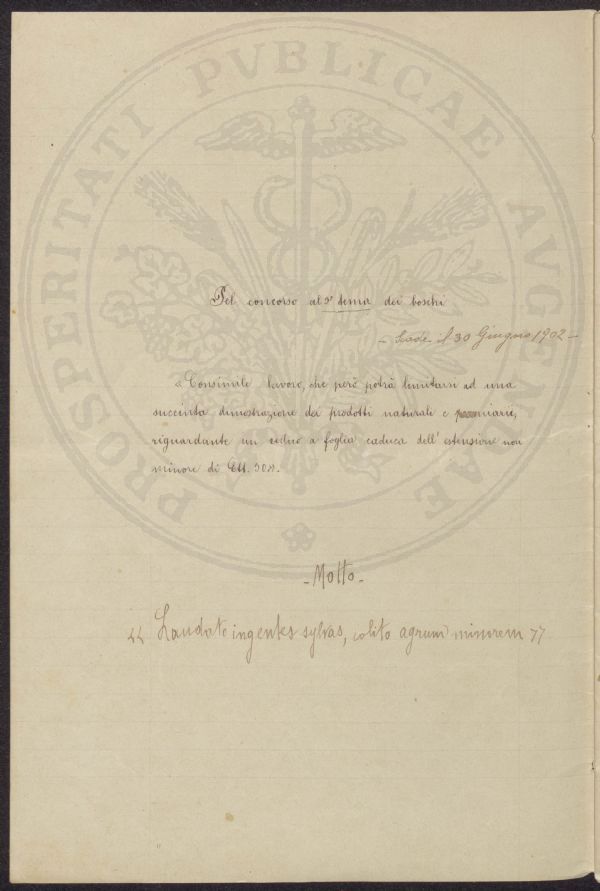 PROSPERITATI PVBLICAE AVGENDAE
Pel concorso al 3° tema dei boschi
- Scade il 30 Giugno 1902 -
« Consimile lavoro, che però potrà limitarsi ad una
succinta dimostrazione dei prodotti naturale e pecuniarii,
riguardante un ceduo a foglia caduca dell' estensione non
minore di Ett. 30 ».
- Motto -
" Laudato ingentes sylvas, colito agrum minorem "